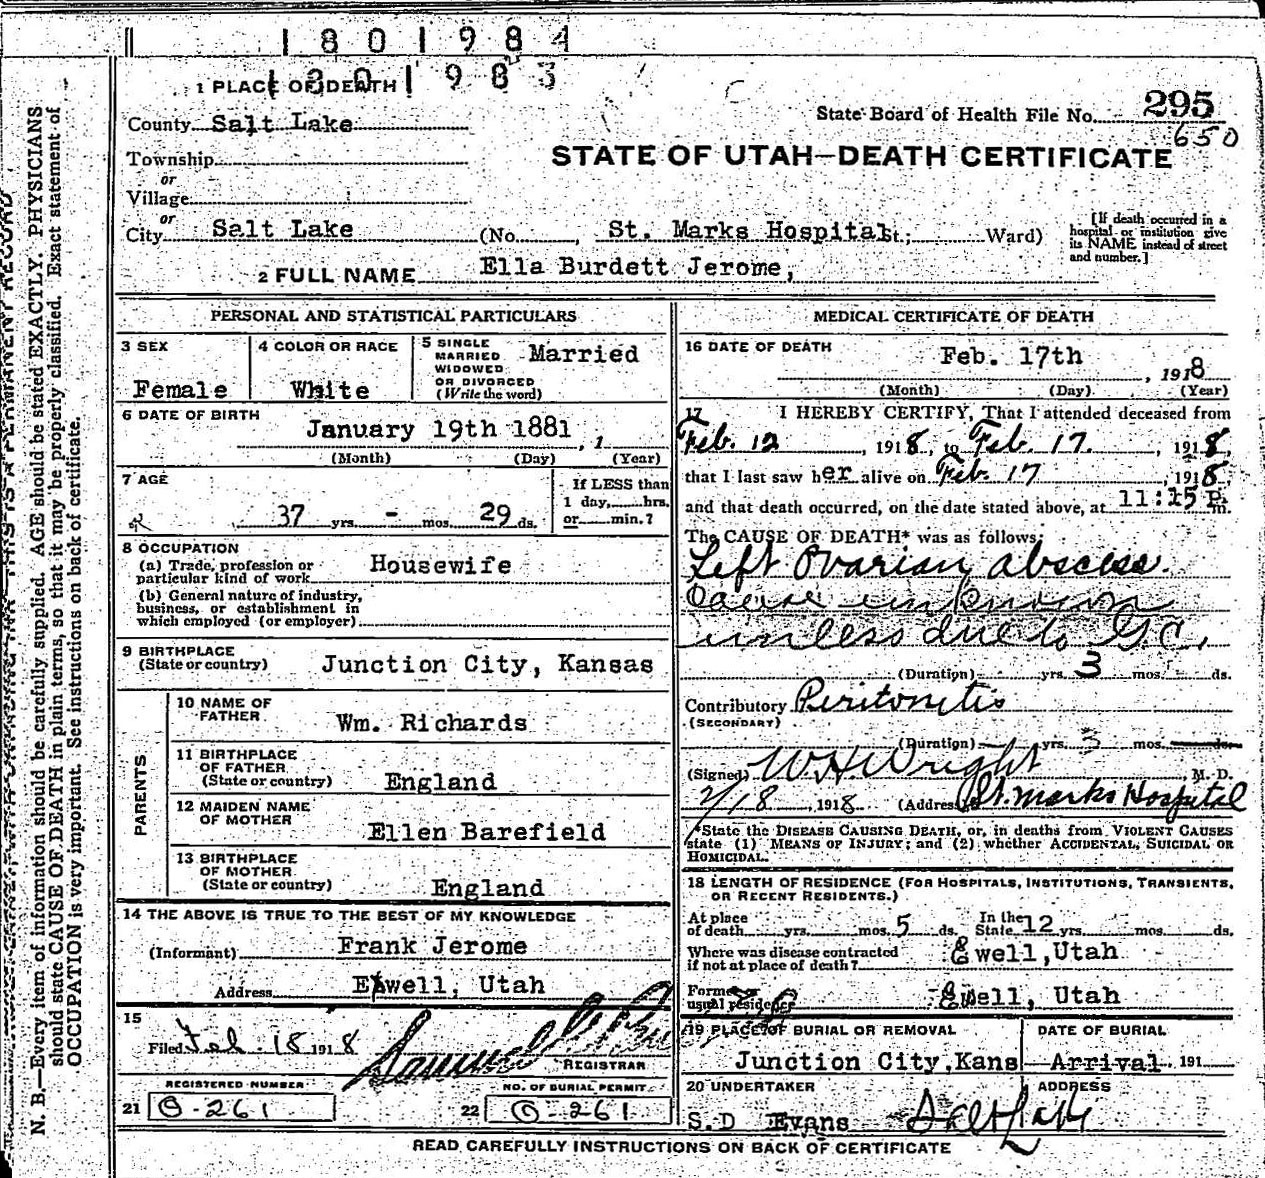 1801984
1801983
1 PLACE OF DEATH
County Salt Lake
State Board of Health File No. 295
650
Township
or
Village
or
STATE OF UTAH—DEATH CERTIFICATE
City Salt Lake (No. , St. Marks Hospital St.; Ward)
[If death occurred in a
hospital or institution give
its NAME instead of street
and number.]
2 FULL NAME Ella Burdett Jerome,
PERSONAL AND STATISTICAL PARTICULARS
3 SEX
Female
4 COLOR OR RACE
White
5 SINGLE
MARRIED
WIDOWED
OR DIVORCED
(Write the word)
Married
6 DATE OF BIRTH
January 19th 1881, 1
(Month) (Day) (Year)
7 AGE
37 yrs. - mos. 29 ds.
If LESS than
1 day, hrs.
or min.?
8 OCCUPATION
(a) Trade, profession or
particular kind of work Housewife
(b) General nature of industry,
business, or establishment in
which employed (or employer)
9 BIRTHPLACE
(State or country) Junction City, Kansas
PARENTS
10 NAME OF
FATHER Wm. Richards
11 BIRTHPLACE
OF FATHER
(State or country) England
12 MAIDEN NAME
OF MOTHER Ellen Barefield
13 BIRTHPLACE
OF MOTHER
(State or country) England
14 THE ABOVE IS TRUE TO THE BEST OF MY KNOWLEDGE
(Informant) Frank Jerome
Address Ewell, Utah
15
Filed Feb. 18 1918
REGISTRAR
REGISTERED NUMBER
21 O-261
NO. OF BURIAL PERMIT
22 O-261
MEDICAL CERTIFICATE OF DEATH
16 DATE OF DEATH
Feb. 17th, 1918
(Month) (Day) (Year)
17 I HEREBY CERTIFY, That I attended deceased from
Feb. 12, 1918, to Feb. 17., 1918,
that I last saw her alive on Feb. 17, 1918,
and that death occurred, on the date stated above, at 11:15 P. m.
The CAUSE OF DEATH* was as follows:
Left Ovarian abscess.
Cause unknown
unless due to G.C.
(Duration) yrs. 3 mos. ds.
Contributory Peritonitis
(SECONDARY)
(Duration) yrs. 3 mos. ds.
(Signed) W H Wright, M. D.
2/18, 1918 (Address) St. Marks Hospital
*State the DISEASE CAUSING DEATH, or, in deaths from VIOLENT CAUSES
state (1) MEANS OF INJURY; and (2) whether ACCIDENTAL, SUICIDAL OR
HOMICIDAL.
18 LENGTH OF RESIDENCE (FOR HOSPITALS, INSTITUTIONS, TRANSIENTS,
OR RECENT RESIDENTS.)
At place
of death yrs. mos. 5 ds.
In the
State 12 yrs. mos. ds.
Where was disease contracted
if not at place of death? Ewell, Utah
Former or
usual residence Ewell, Utah
19 PLACE OF BURIAL OR REMOVAL
Junction City, Kans
DATE OF BURIAL
Arrival 191
20 UNDERTAKER
S. D Evans
ADDRESS
Salt Lake
READ CAREFULLY INSTRUCTIONS ON BACK OF CERTIFICATE
THIS IS A PERMANENT RECORD
N. B.—Every item of information should be carefully supplied. AGE should be stated EXACTLY. PHYSICIANS
should state CAUSE OF DEATH in plain terms, so that it may be properly classified. Exact statement of
OCCUPATION is very important. See instructions on back of certificate.